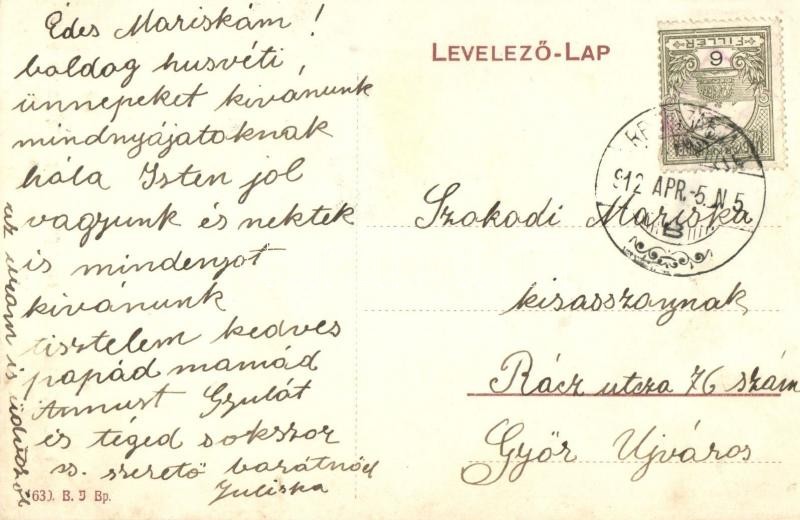 Édes Mariskám!
boldog husvéti
ünnepeket kivánunk
mindnyájatoknak
hála Isten jol
vagyunk és nektek
is mindenyot
kivánunk
tisztelem kedves
papád mamád
Annust Gyulát
és téged sokszor
szerető barátnőd
Juliska
az uram is üdvözöl
630. B. J Bp.
LEVELEZŐ-LAP
FILLÉR
6
912 APR.-5.N 5
B
Szokodi Mariska
kisasszonynak
Rácz utcza 76 szám
Győr Ujváros